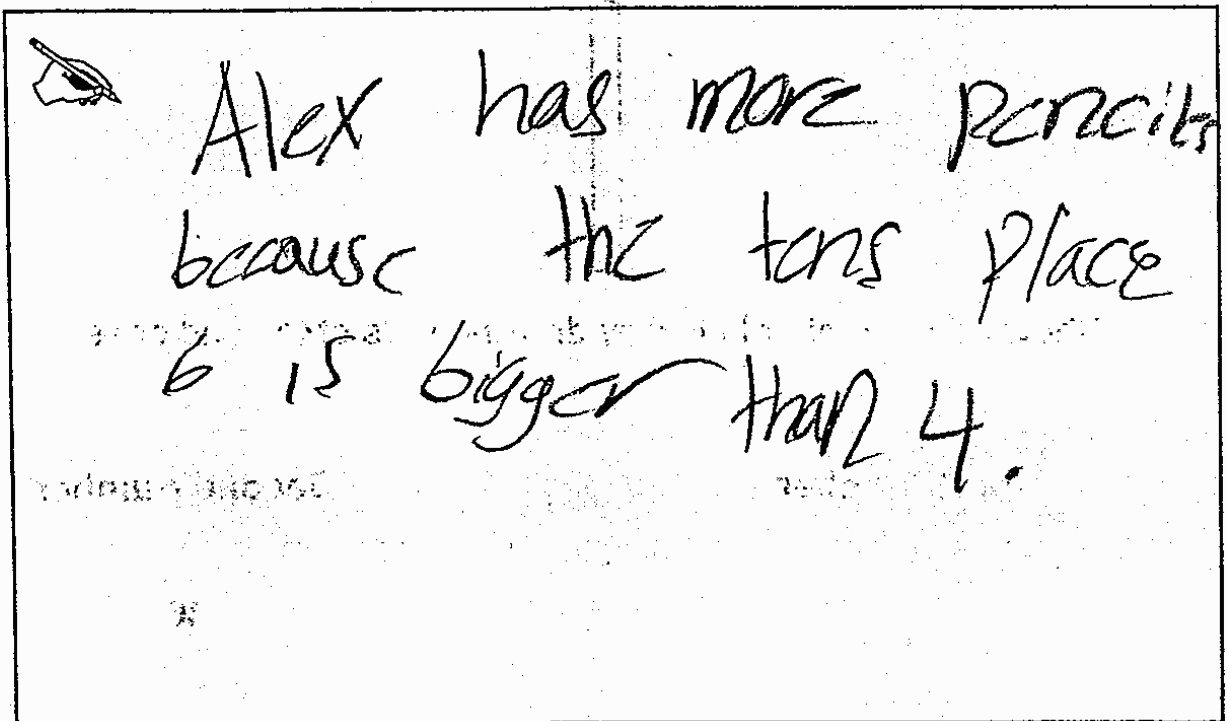 Alex has more pencils
because the tens place
6 is bigger than 4.